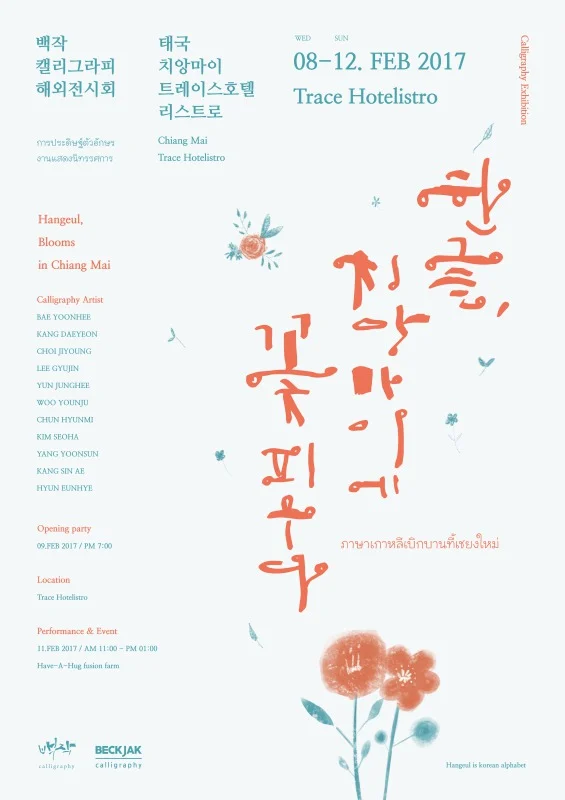 백작
캘리그라피
해외전시회
태국
치앙마이
트레이스호텔
리스트로
WED SUN
08-12. FEB 2017
Trace Hotelistro
Calligraphy Exhibition
การประดิษฐ์ตัวอักษร
งานแสดงนิทรรศการ
Chiang Mai
Trace Hotelistro
한글,
치앙마이에
꽃 피우다
ภาษาเกาหลีเบิกบานที่เชียงใหม่
Hangeul,
Blooms
in Chiang Mai
Calligraphy Artist
BAE YOONHEE
KANG DAEYEON
CHOI JIYOUNG
LEE GYUJIN
YUN JUNGHEE
WOO YOUNJU
CHUN HYUNMI
KIM SEOHA
YANG YOONSUN
KANG SIN AE
HYUN EUNHYE
Opening party
09.FEB 2017 / PM 7:00
Location
Trace Hotelistro
Performance & Event
11.FEB 2017 / AM 11:00 - PM 01:00
Have-A-Hug fusion farm
백작
calligraphy
BECKJAK
calligraphy
Hangeul is korean alphabet